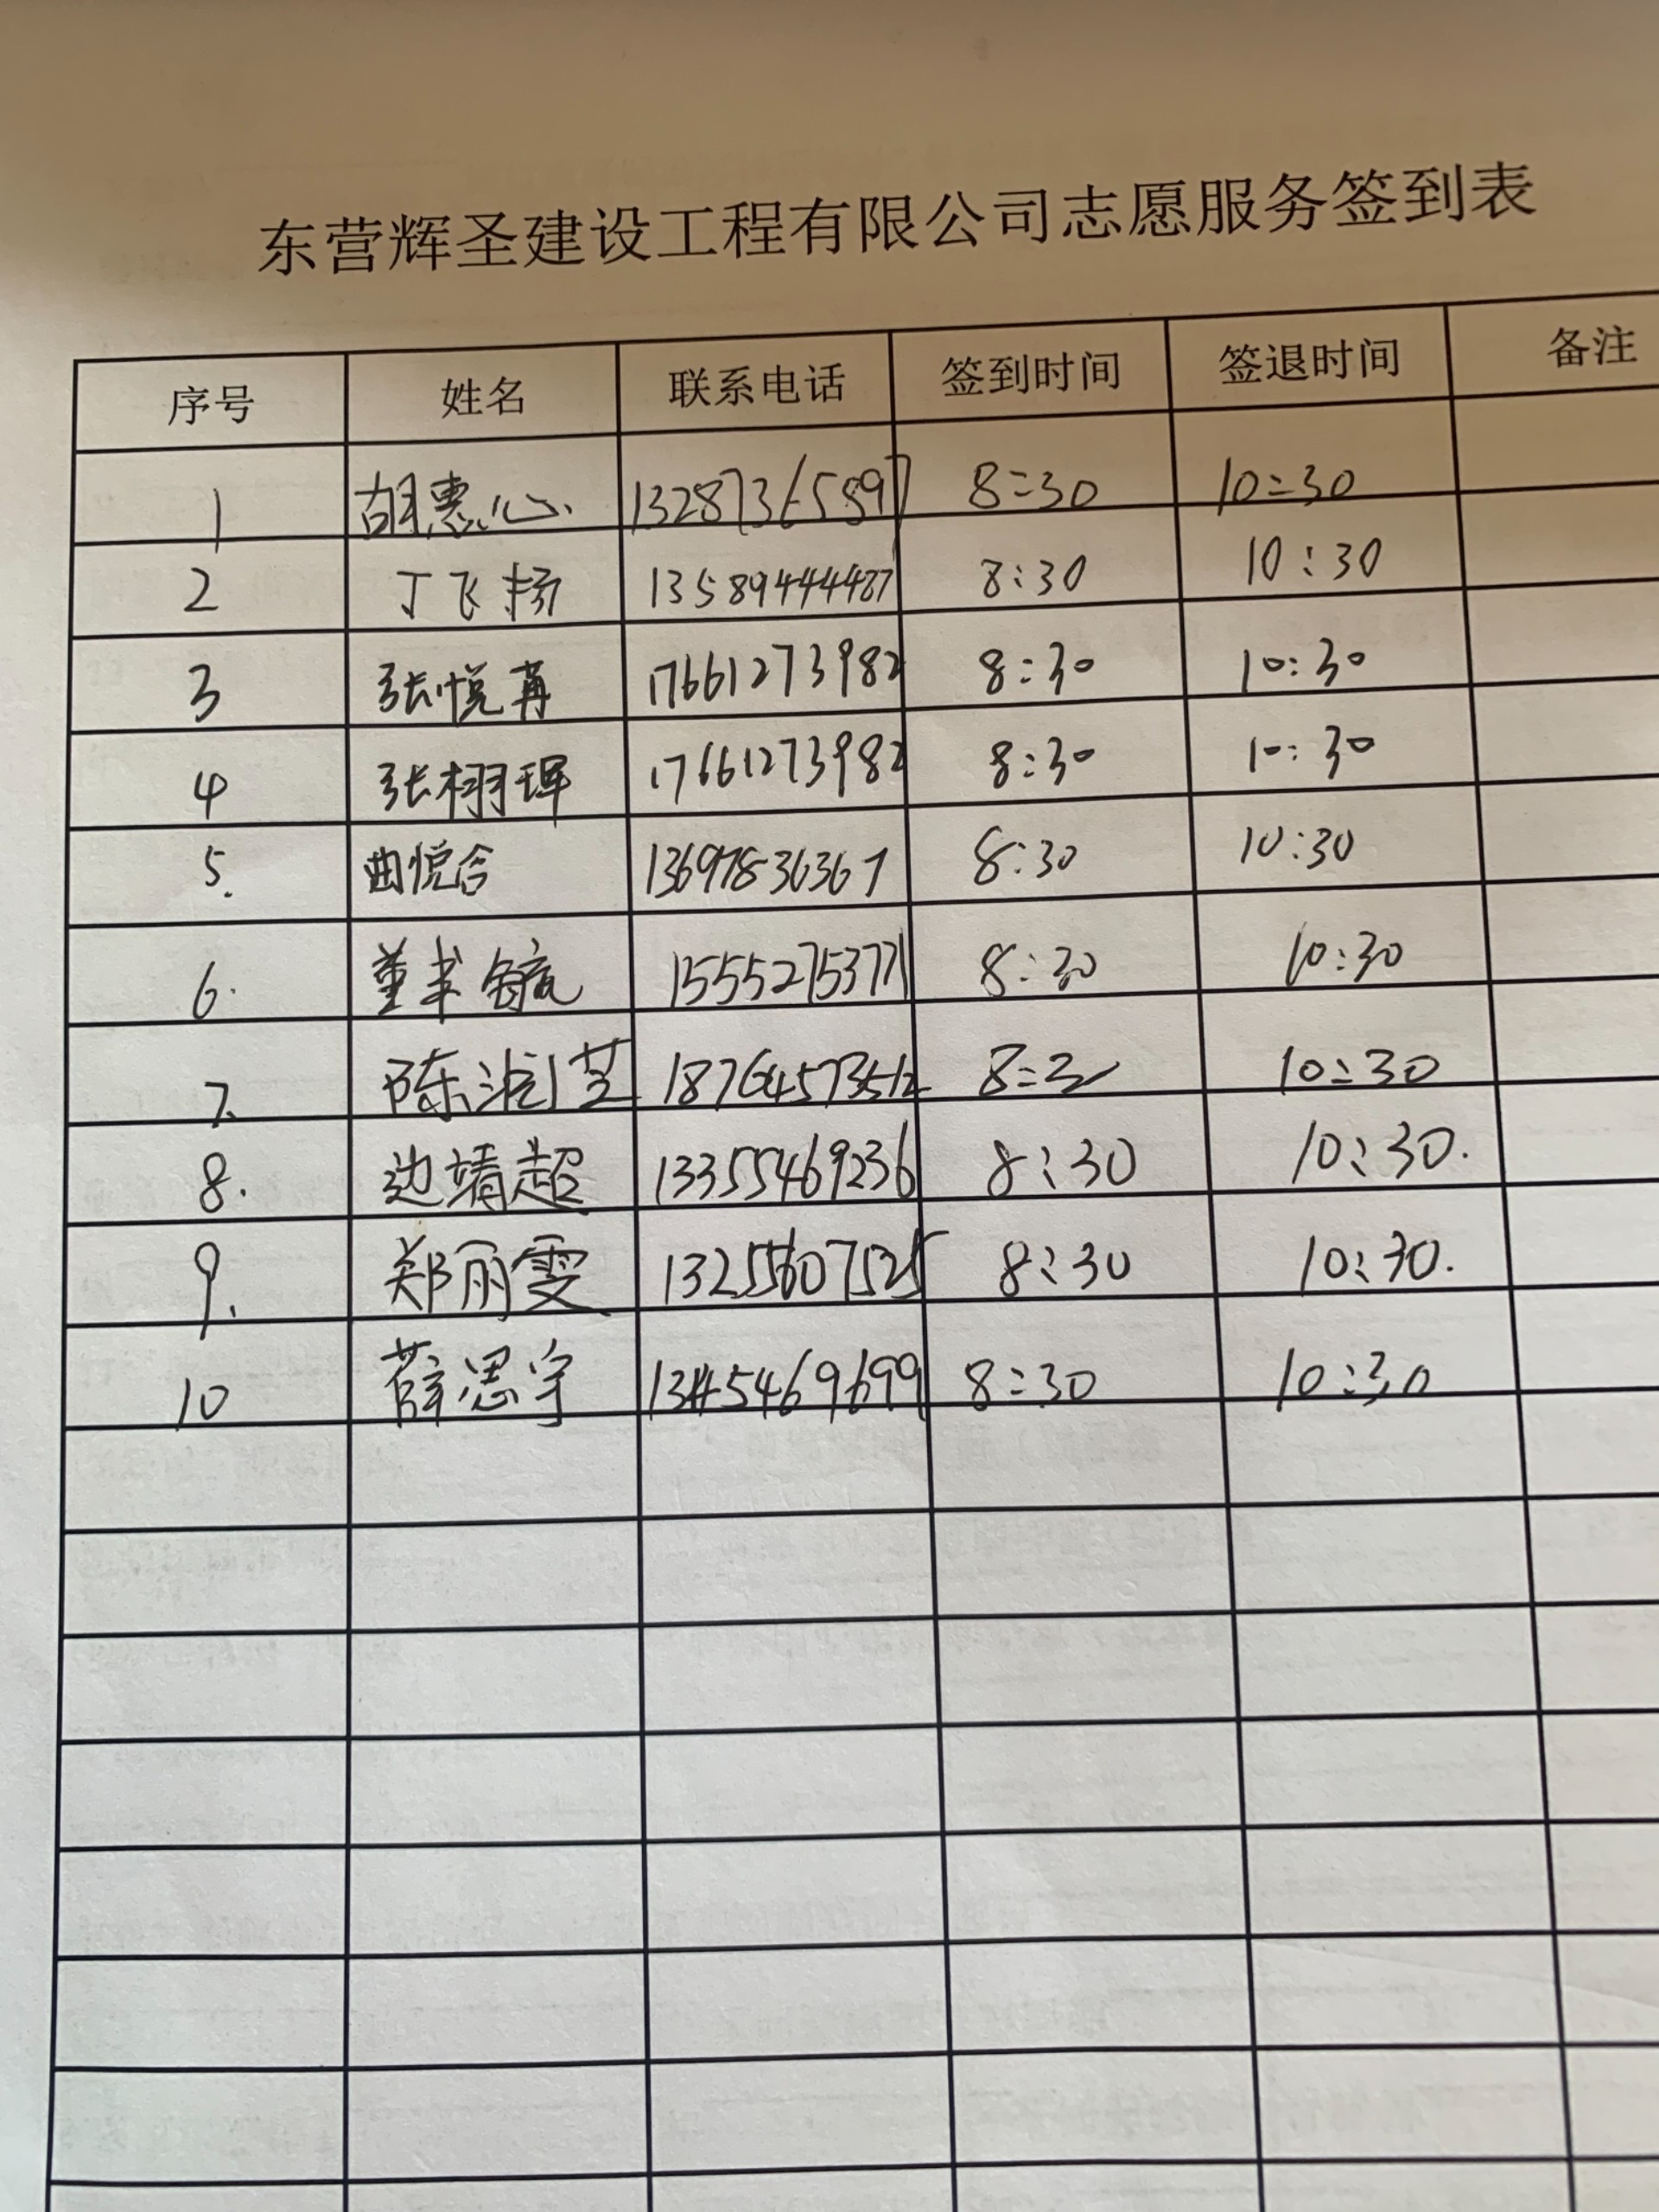 东营辉圣建设工程有限公司志愿服务签到表
序号 姓名 联系电话 签到时间 签退时间 备注
1 胡惠心 13287365897 8:30 10:30
2 丁飞扬 13589444487 8:30 10:30
3 张悦苒 17661273982 8:30 10:30
4 张栩珲 17661273982 8:30 10:30
5. 曲悦含 13697836367 8:30 10:30
6. 董 15552753771 8:30 10:30
7. 陈润芝 18764573512 8:30 10:30
8. 边靖超 13355469236 8:30 10:30.
9. 郑丽雯 13255607525 8:30 10:30.
10 薛思宇 13455469699 8:30 10:30